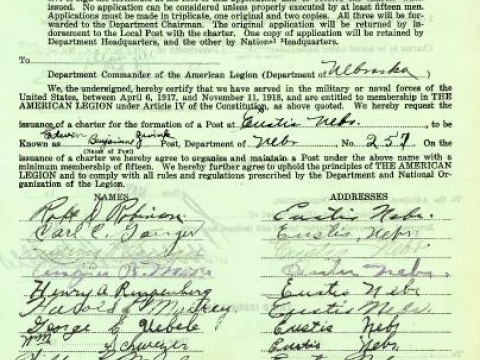 issued. No application can be considered unless properly executed by at least fifteen men.
Applications must be made in triplicate, one original and two copies. All three will be for-
warded to the Department Chairman. The original application will be returned by in-
dorsement to the Local Post with the charter. One copy of application will be retained by
Department Headquarters, and the other by National Headquarters.
To
Department Commander of the American Legion (Department of Nebraska)
We, the undersigned, hereby certify that we served in the military or naval forces of the
United States, between April 6, 1917, and November 11, 1918, and are entitled to membership in THE
AMERICAN LEGION under Article IV of the Constitution, as above quoted. We hereby request
issuance of a charter for the formation of a Post at Eustis Nebr. , to be
Known as Edwin Benjamin Post, Department of Nebr No. 257 On the
(Name of Post)
issuance of a charter we hereby agree to organize and maintain a Post under the above name with a
minimum membership of fifteen. We hereby further agree to uphold the principles of THE AMERICAN
LEGION and to comply with all rules and regulations prescribed by the Department and National Or-
ganization of the Legion.
NAMES ADDRESSES
Robt D. Robinson Eustis Nebr.
Carl C. Eustis, Nebr.
B. Moore Eustis Nebr.
Henry A. Rippenberg Eustis Nebr
Harold Eustis Nebr.
George E Uebele Eustis Nebr
Wm Schweizer Eustis Nebr.